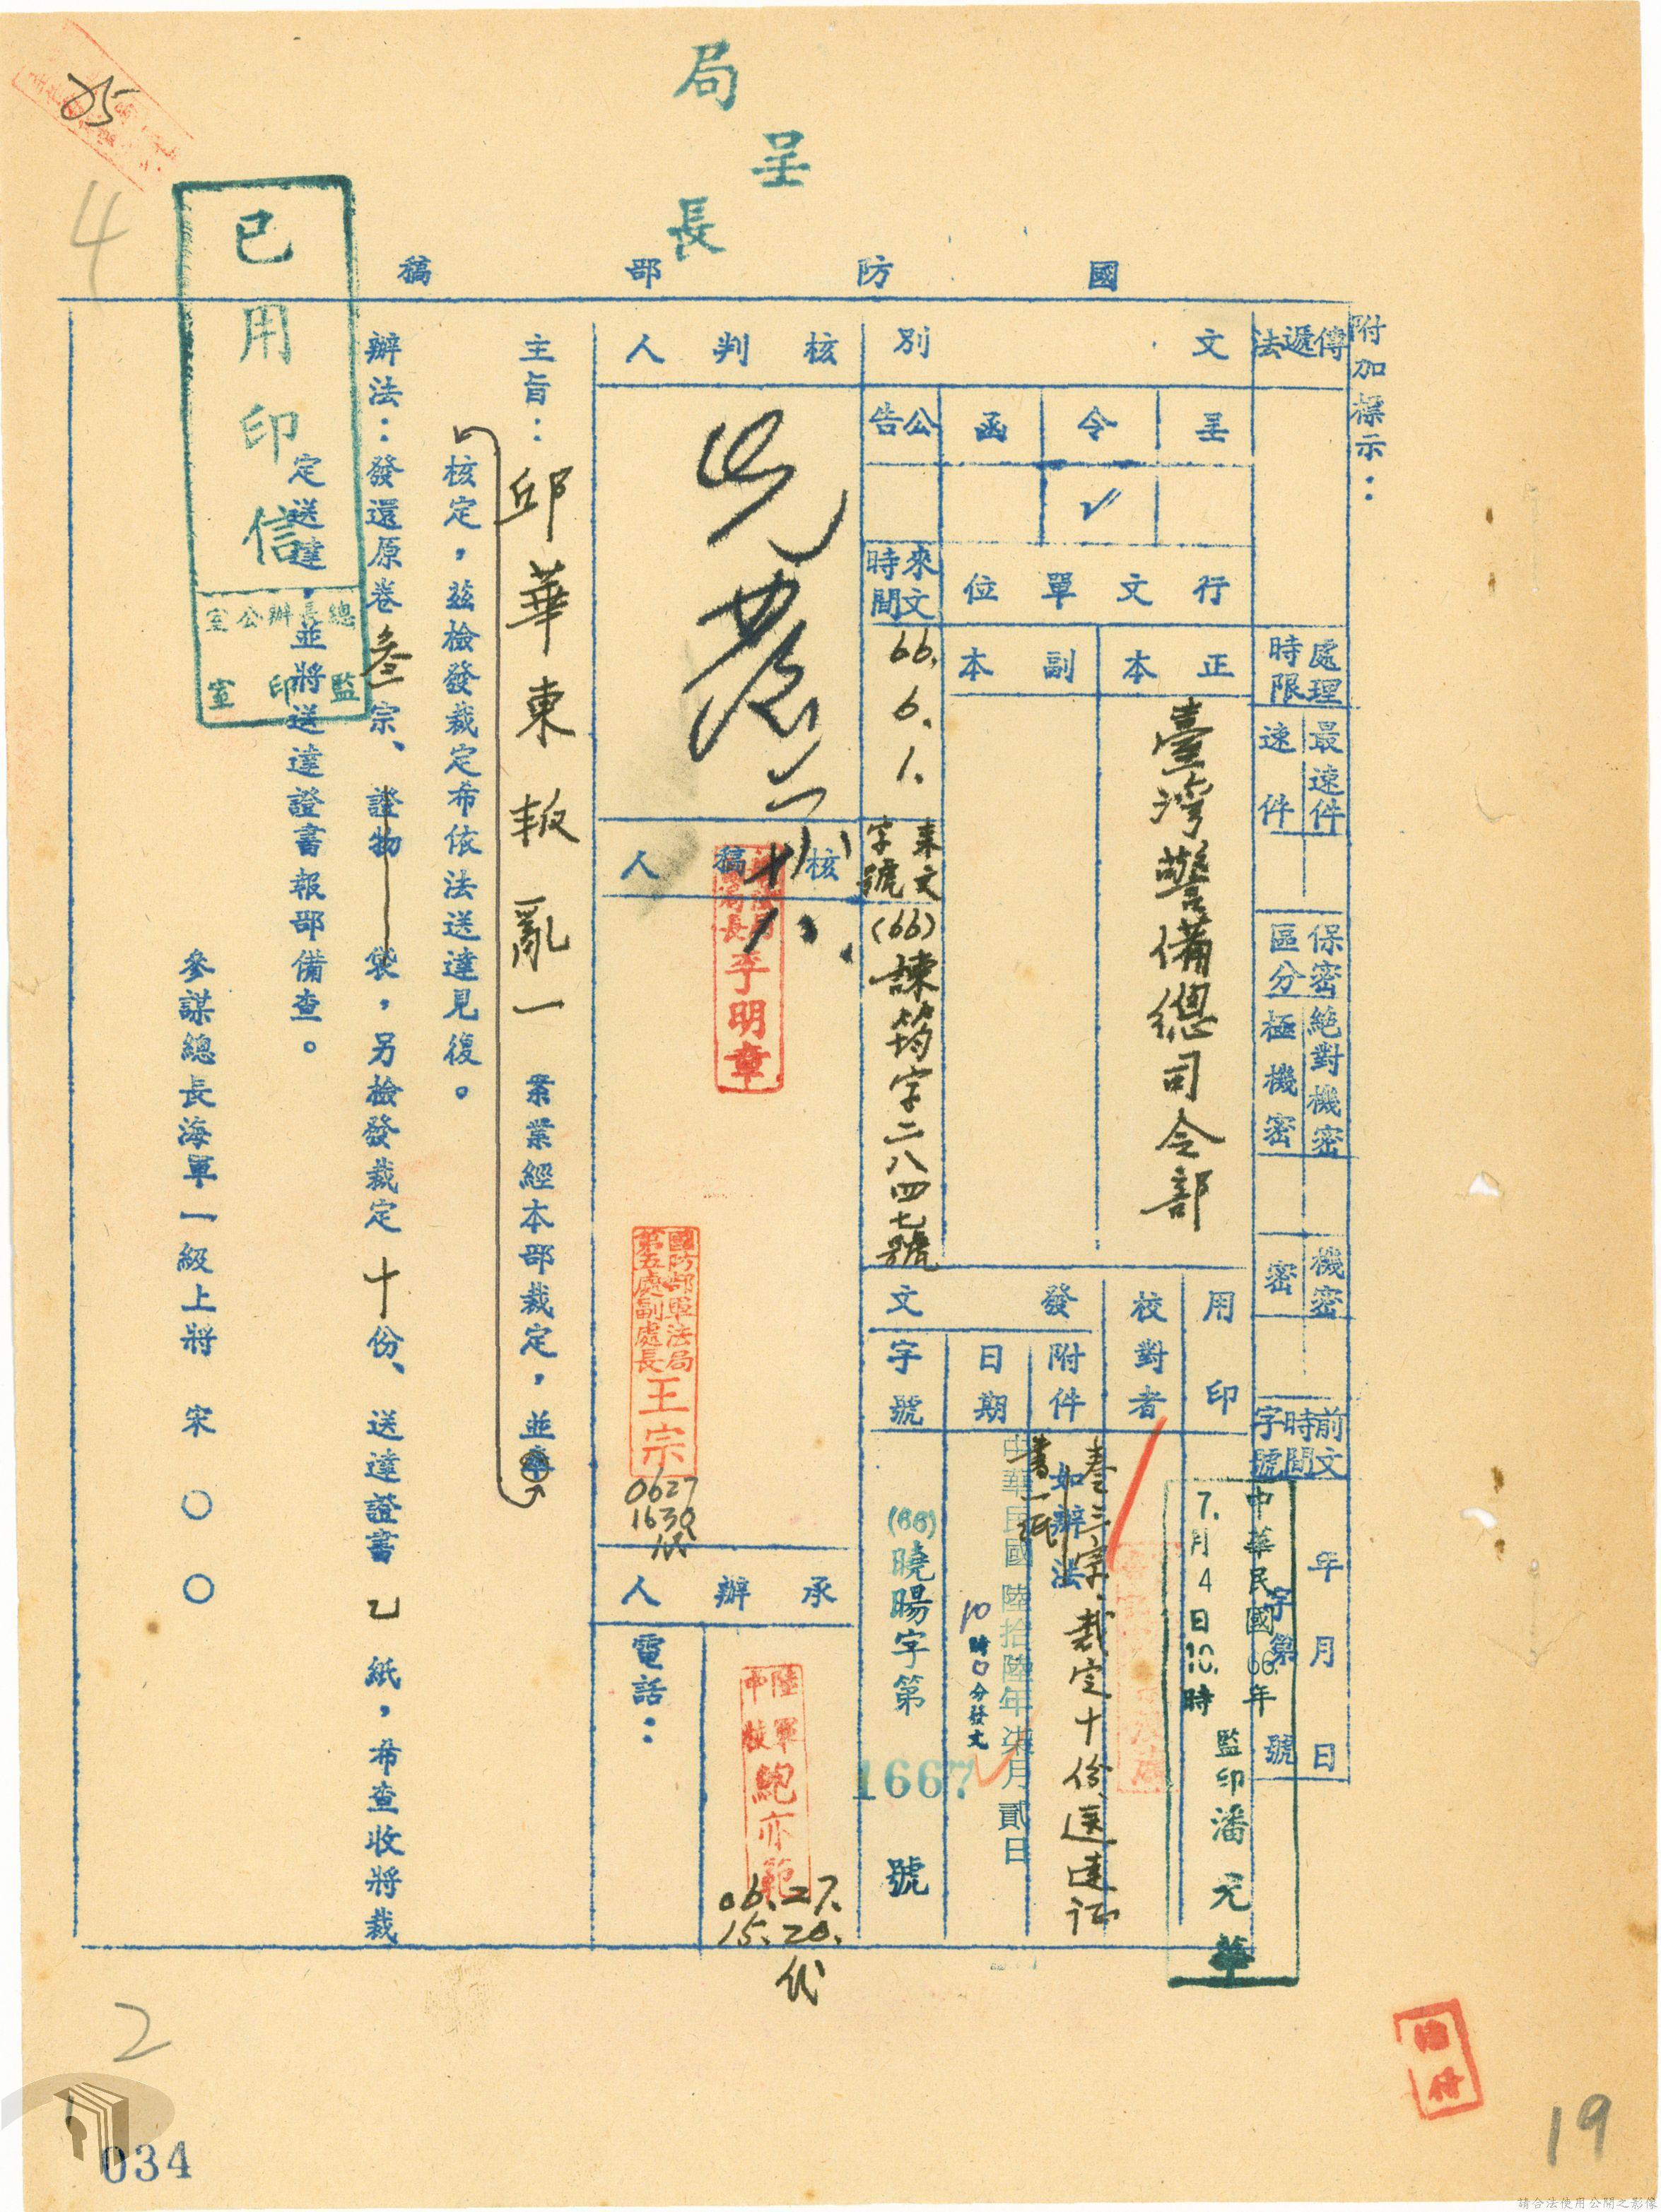 局長
呈
國防部稿
附加標示：
傳遞法
處理時限
最速件
速件
保密區分
絕對機密
極機密
機密
密
前文時間字號
年月日
字第號
文別
呈
令
函
公告
✓
行文單位
正本
副本
臺灣警備總司令部
來文時間
66.6.1.
來文字號
(66)諫筠字二八四七號
用印
中華民國66年
7.月4日10.時
監印潘元華
校對者
發文
附件
如辦法
卷三宗、裁定十份送達証
書一紙
日期
中華民國陸拾陸年柒月貳日
10時0分發文
字號
(66)曉暘字第
1667
號
核判人
核稿人
李明章
國防部軍法局
第五處副處長
王宗
0627
1630
代
承辦人
陸軍
中校
鮑亦範
06.27.
15.20.
代
電話：
主旨：邱華東叛亂一案業經本部裁定，並奉
核定，茲檢發裁定希依法送達見復。
辦法：發還原卷叁宗、證物袋，另檢發裁定十份、送達證書乙紙，希查收將裁
定送達，並將送達證書報部備查。
參謀總長海軍一級上將宋○○
已用印信
總長辦公室
監印室
25
4
2
034
19
請合法使用公開之影像